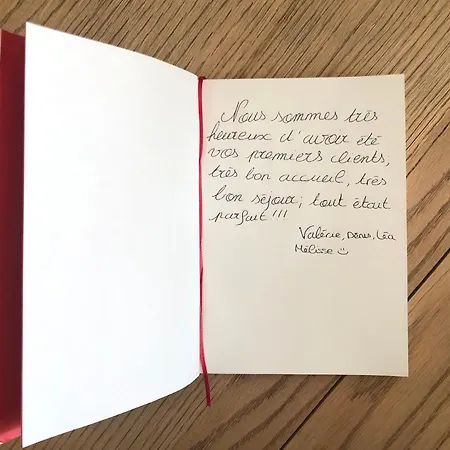 Nous sommes très
heureux d'avoir été
vos premiers clients,
très bon accueil, très
bon séjour; tout était
parfait!!!
Valérie, Denis, Léa
Mélisse ☺